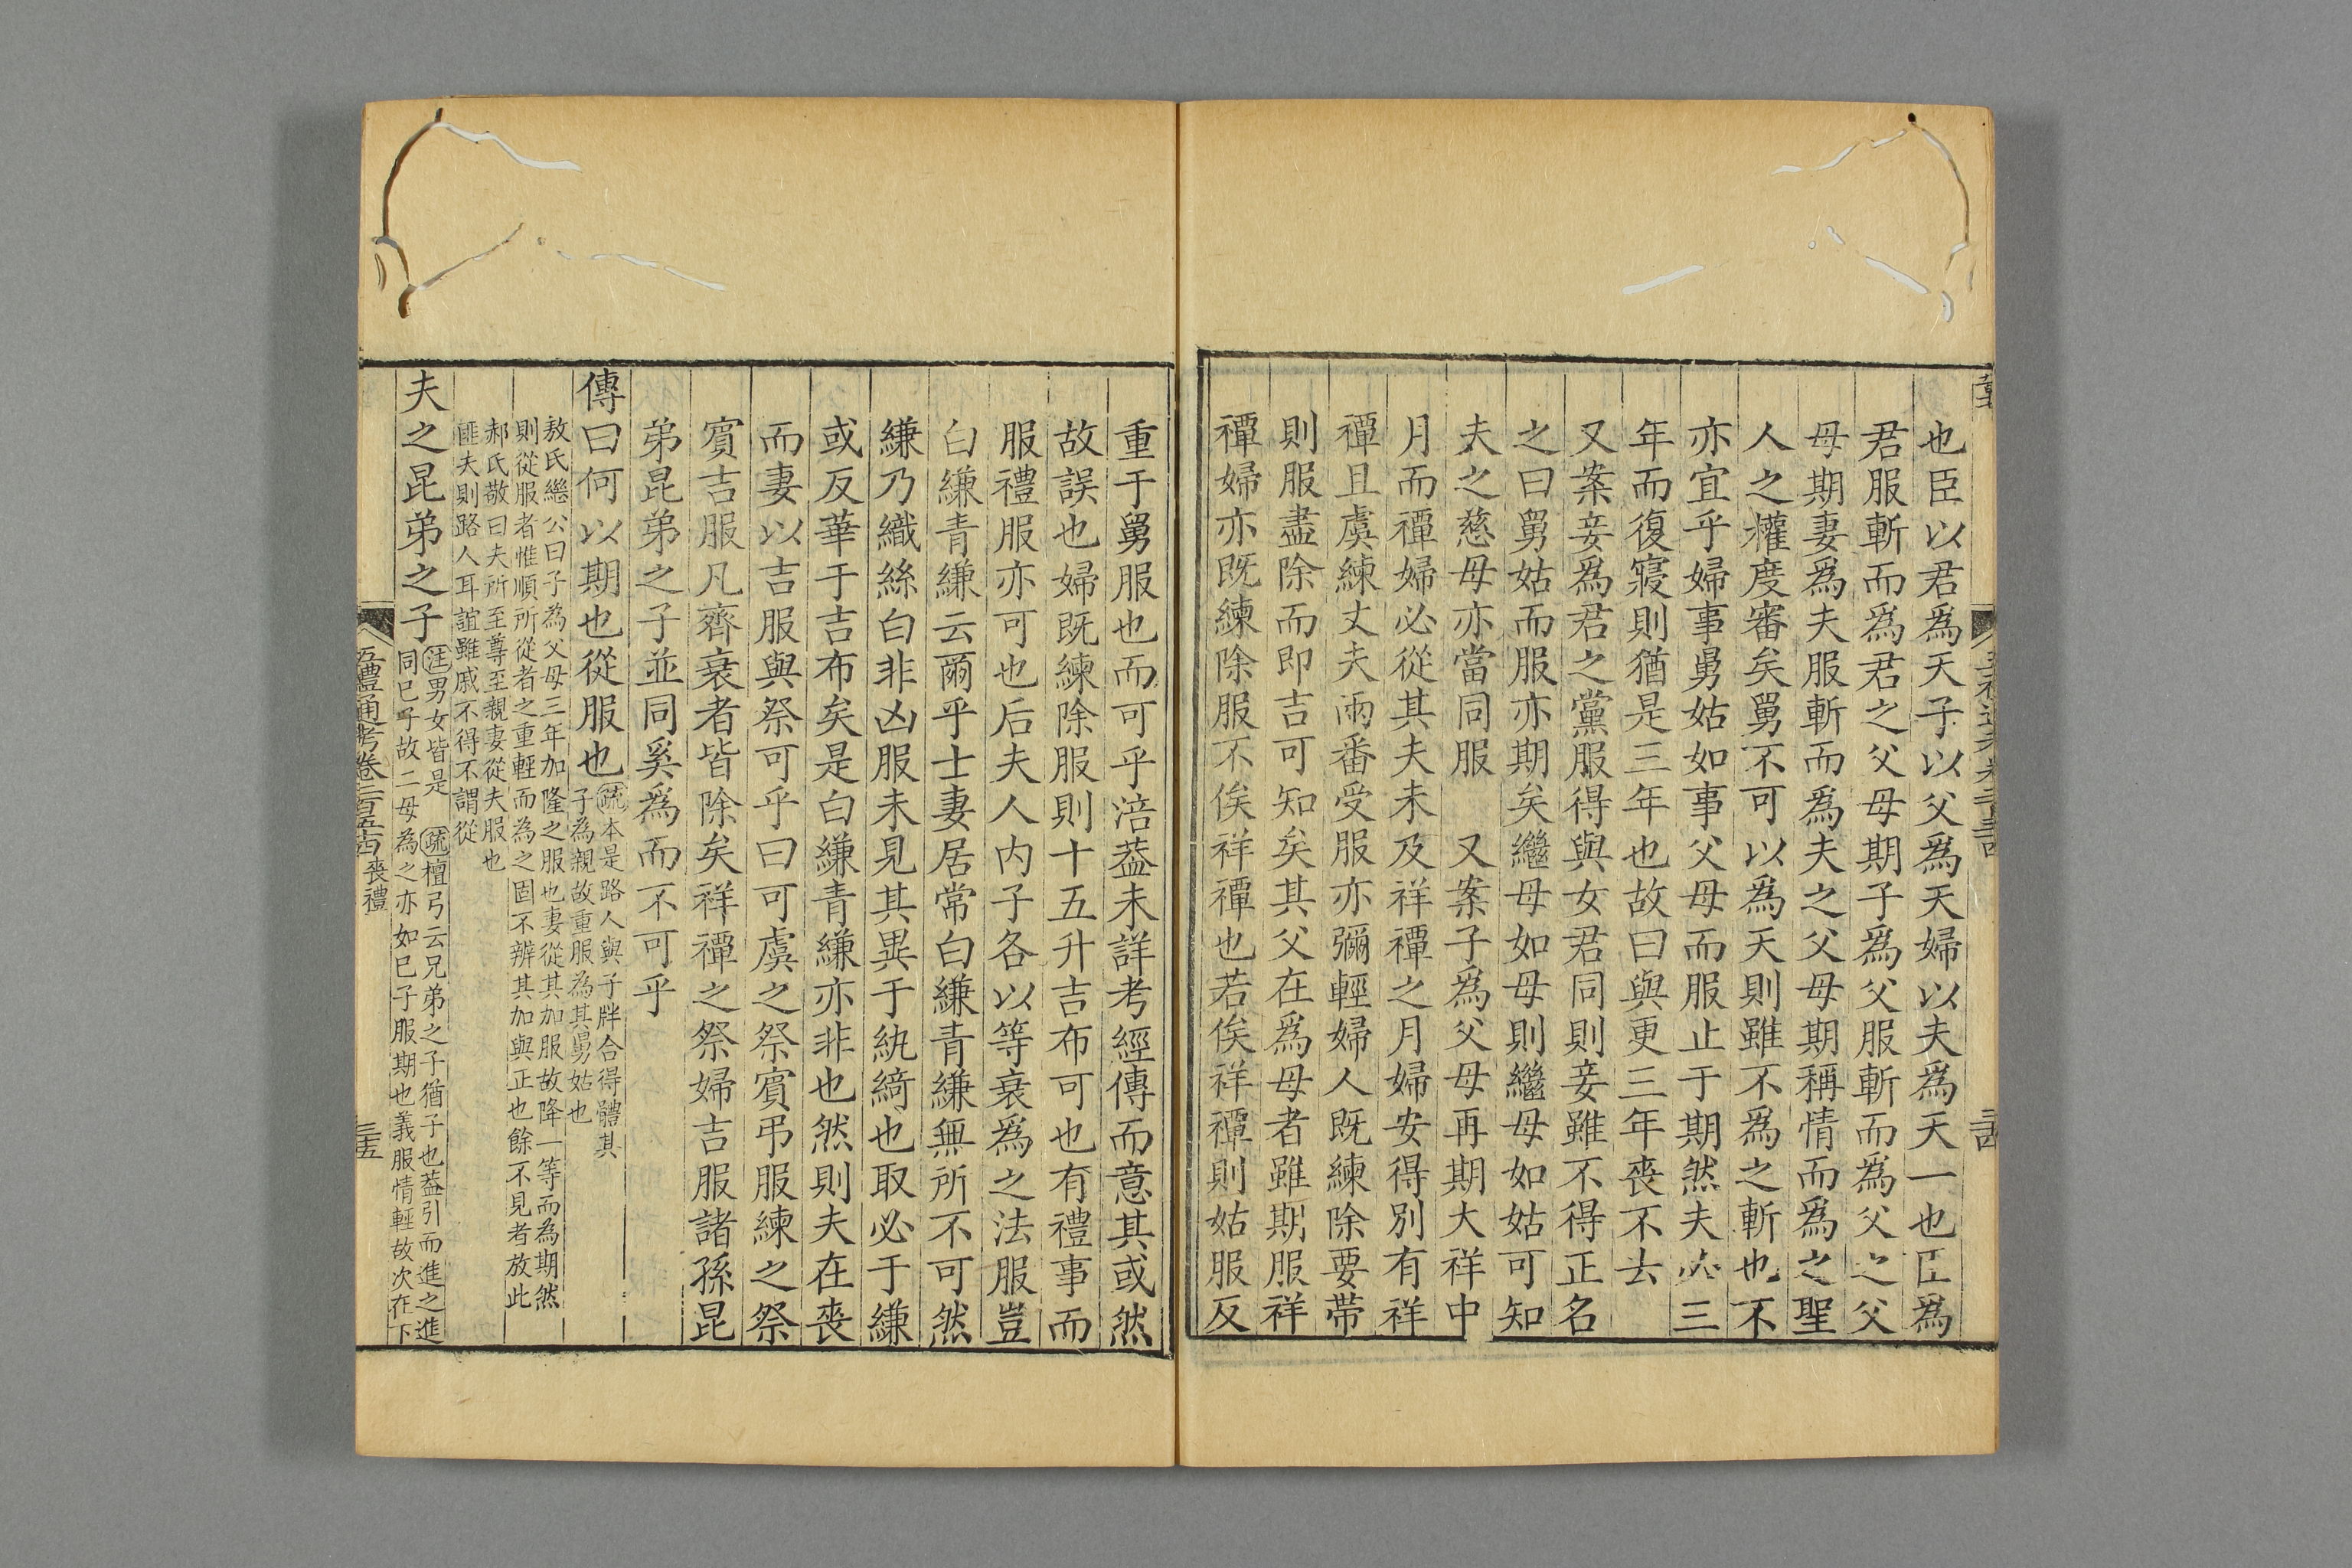 也臣以君爲天子以父爲天婦以夫爲天一也臣爲
君服斬而爲君之父母期子爲父服斬而爲父之父
母期妻爲夫服斬而爲夫之父母期稱情而爲之聖
人之權度審矣舅不可以爲天則雖不爲之斬也不
亦宜乎婦事舅姑如事父母而服止于期然夫必三
年而復寢則猶是三年也故曰與更三年喪不去
又案妾爲君之黨服得與女君同則妾雖不得正名
之曰舅姑而服亦期矣繼母如母則繼母如姑可知
夫之慈母亦當同服 又案子爲父母再期大祥中
月而禫婦必從其夫未及祥禫之月婦安得別有祥
禫且虞練丈夫兩番受服亦彌輕婦人既練除要帶
則服盡除而即吉可知矣其父在爲母者雖期服祥
禫婦亦既練除服不俟祥禫也若俟祥禫則姑服反
重于舅服也而可乎涪葢未詳考經傳而意其或然
故誤也婦既練除服則十五升吉布可也有禮事而
服禮服亦可也后夫人内子各以等衰爲之法服豈
白縑青縑云爾乎士妻居常白縑青縑無所不可然
縑乃織絲白非凶服未見其異于紈綺也取必于縑
或反華于吉布矣是白縑青縑亦非也然則夫在喪
而妻以吉服與祭可乎曰可虞之祭賓弔服練之祭
賓吉服凡齊衰者皆除矣祥禫之祭婦吉服諸孫昆
弟昆弟之子並同奚爲而不可乎
傳曰何以期也從服也
疏本是路人與子牉合得體其
子為親故重服為其舅姑也
敖氏繼公曰子為父母三年加隆之服也妻從其加服故降一等而為期然
則從服者惟順所從者之重輕而為之固不辨其加與正也餘不見者放此
郝氏敬曰夫所至尊至親妻從夫服也
匪夫則路人耳誼雖戚不得不謂從
夫之昆弟之子
注男女皆是 疏檀弓云兄弟之子猶子也葢引而進之進
同已子故二母為之亦如已子服期也義服情輕故次在下
五禮通考卷二百五十四 喪禮
三十五